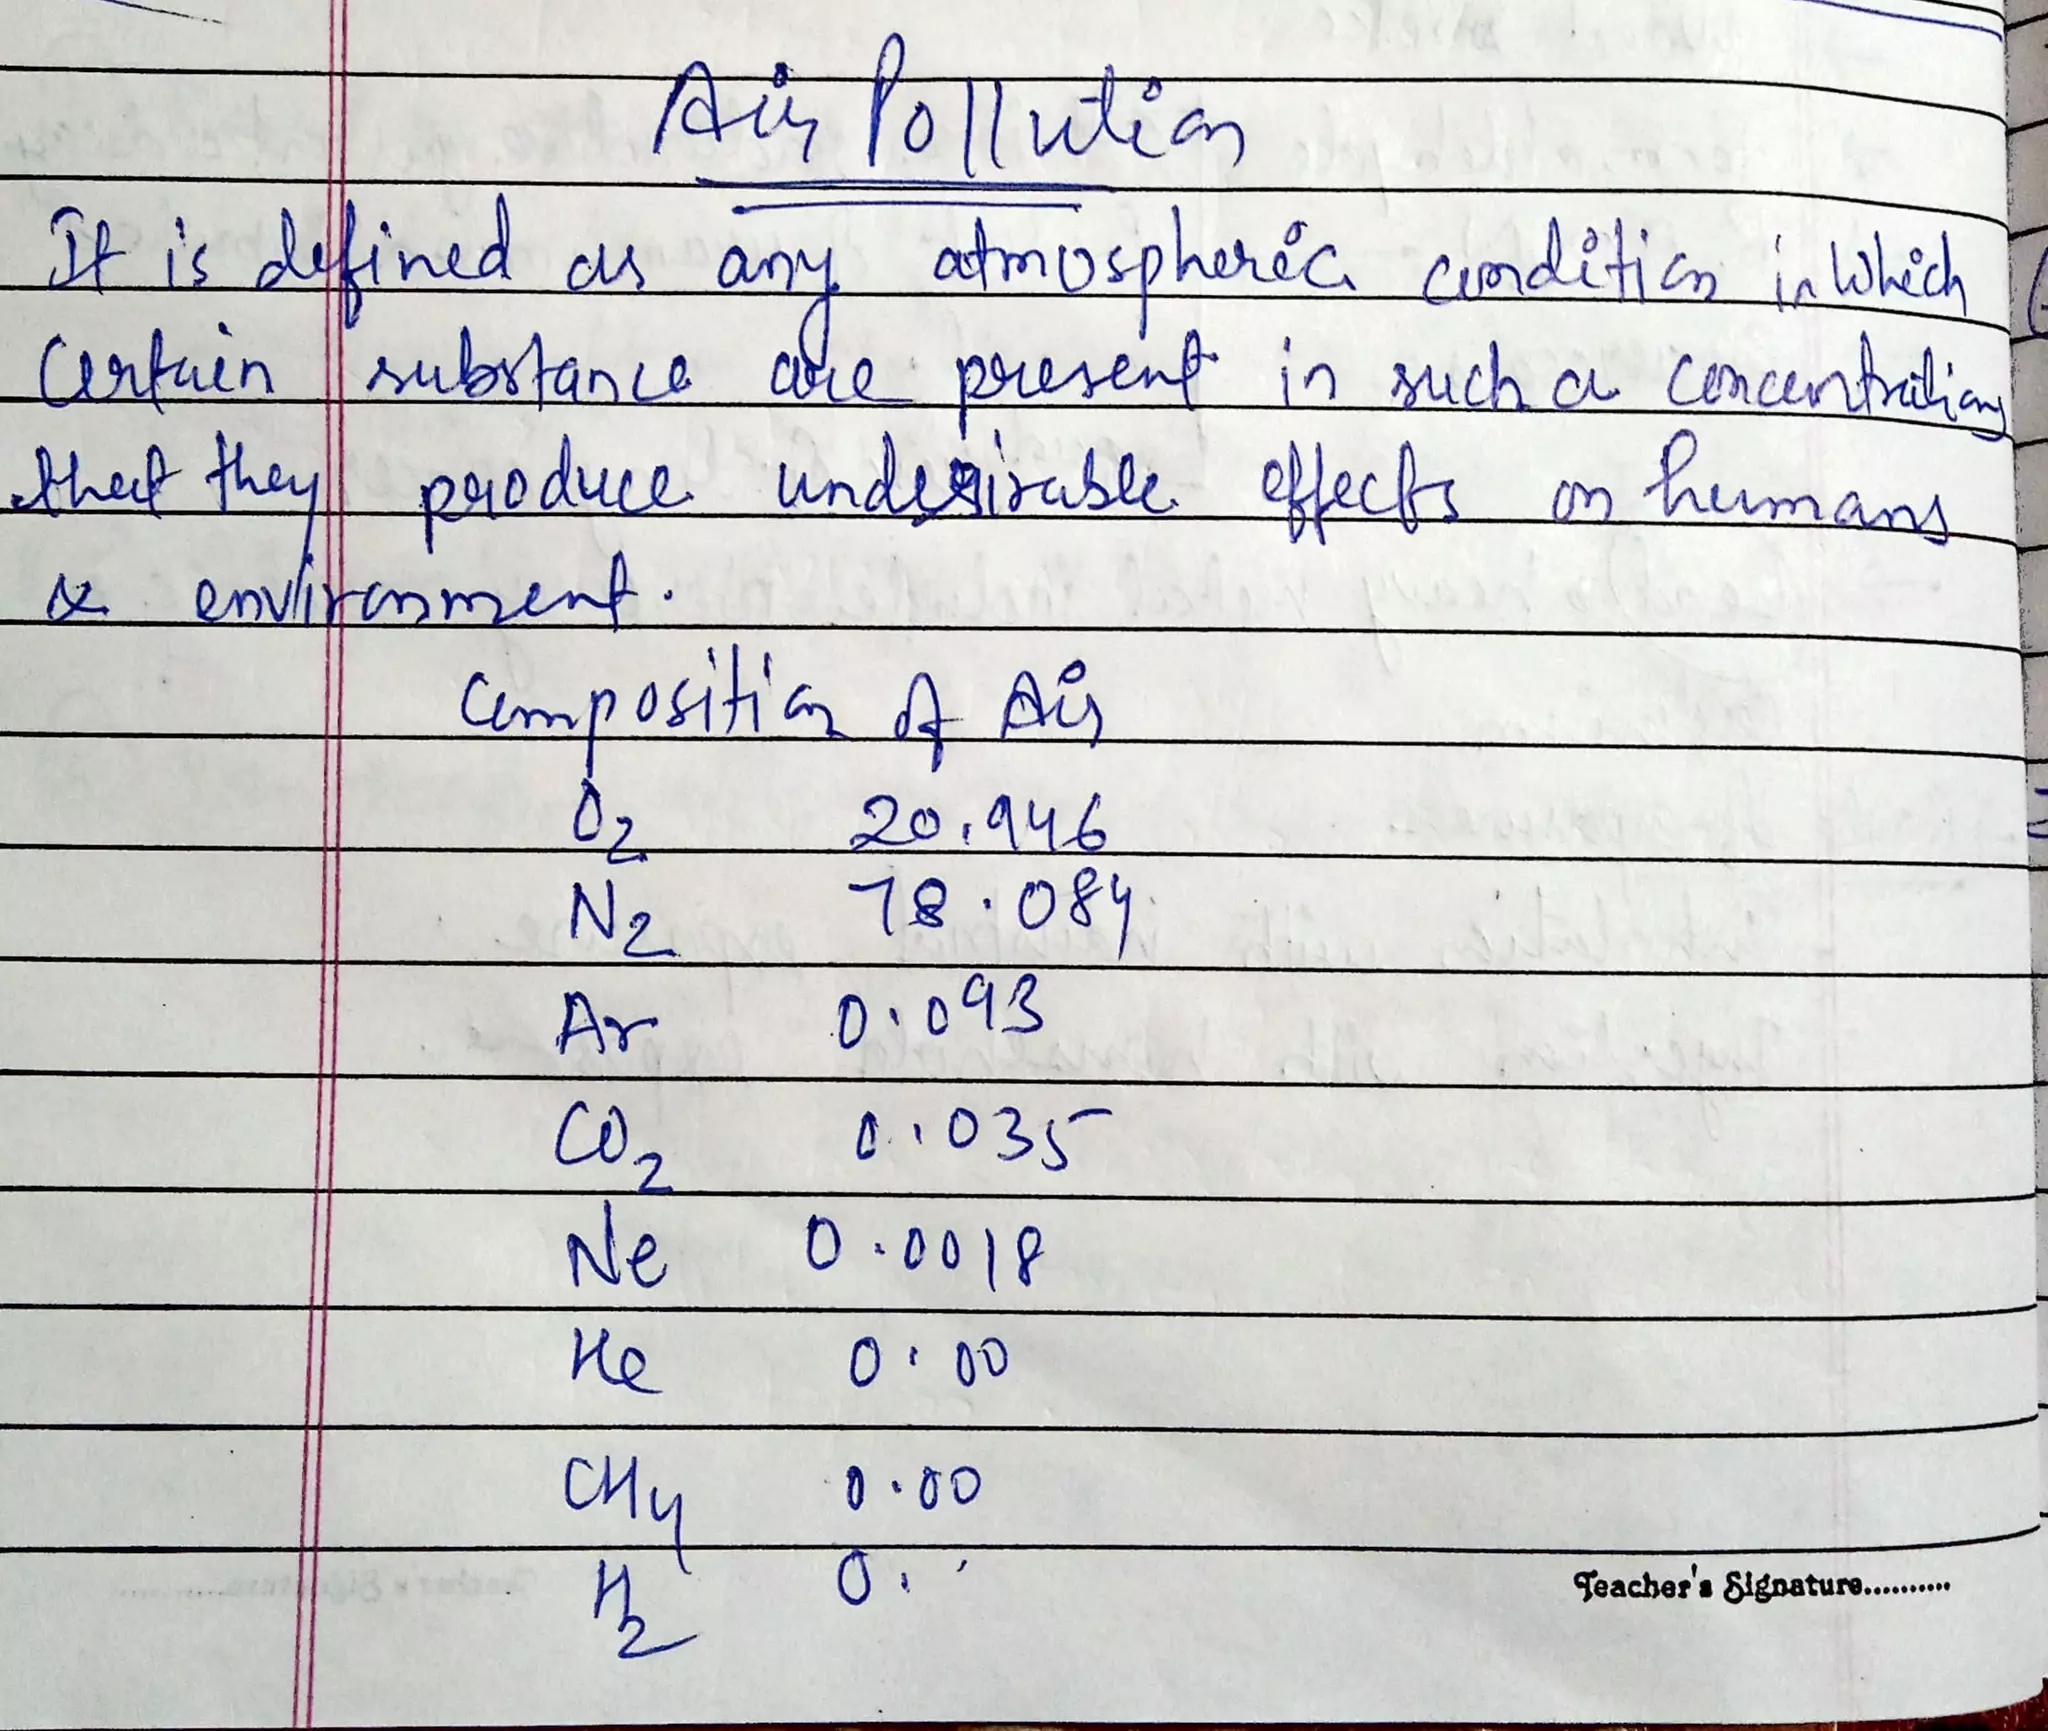 Air Pollution
It is defined as any atmospheric condition in which
certain substance are present in such a concentration
that they produce undesirable effects on humans
& environment.
Composition of Air
O2 20.946
N2 78.084
Ar 0.093
CO2 0.035
Ne 0.0018
He 0.00
CH4 0.00
H2 0.
Teacher's Signature..........